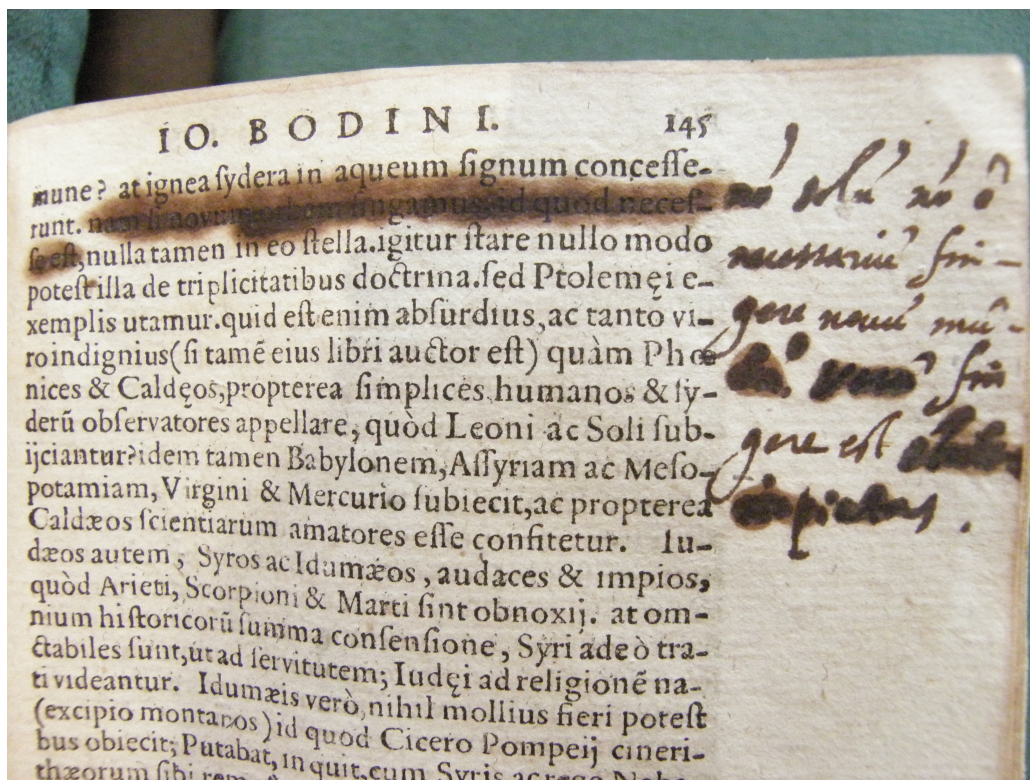 IO. BODINI. 145
mune? at ignea ſydera in aqueum ſignum conceſſe-
runt. nam ſi novum orbem fingamus, id quod neceſ-
ſe eſt, nulla tamen in eo ſtella. igitur ſtare nullo modo
poteſt illa de triplicitatibus doctrina. ſed Ptolemęi e-
xemplis utamur. quid eſt enim abſurdius, ac tanto vi-
ro indignius (ſi tamẽ eius libri auctor eſt) quàm Phœ
nices & Caldęos, propterea ſimplices, humanos & ſy-
derũ obſervatores appellare, quòd Leoni ac Soli ſub-
ijciantur? idem tamen Babylonem, Aſſyriam ac Meſo-
potamiam, Virgini & Mercurio ſubiecit, ac propterea
Caldæos ſcientiarum amatores eſſe confitetur. Iu-
dæos autem, Syros ac Idumæos, audaces & impios,
quòd Arieti, Scorpioni & Marti ſint obnoxij. at om-
nium hiſtoricorũ ſumma conſenſione, Syri adeò tra-
ctabiles ſunt, ut ad ſervitutem; Iudęi ad religionẽ na-
ti videantur. Idumæis verò, nihil mollius fieri poteſt
(excipio montanos) id quod Cicero Pompeij cineri-
bus obiecit; Putabat, inquit, cum Syris ac rege
thæorum ſibi rem
nõ solũ nõ ẽ
necessariũ fin-
gere nouũ mũ-
fin
gere est